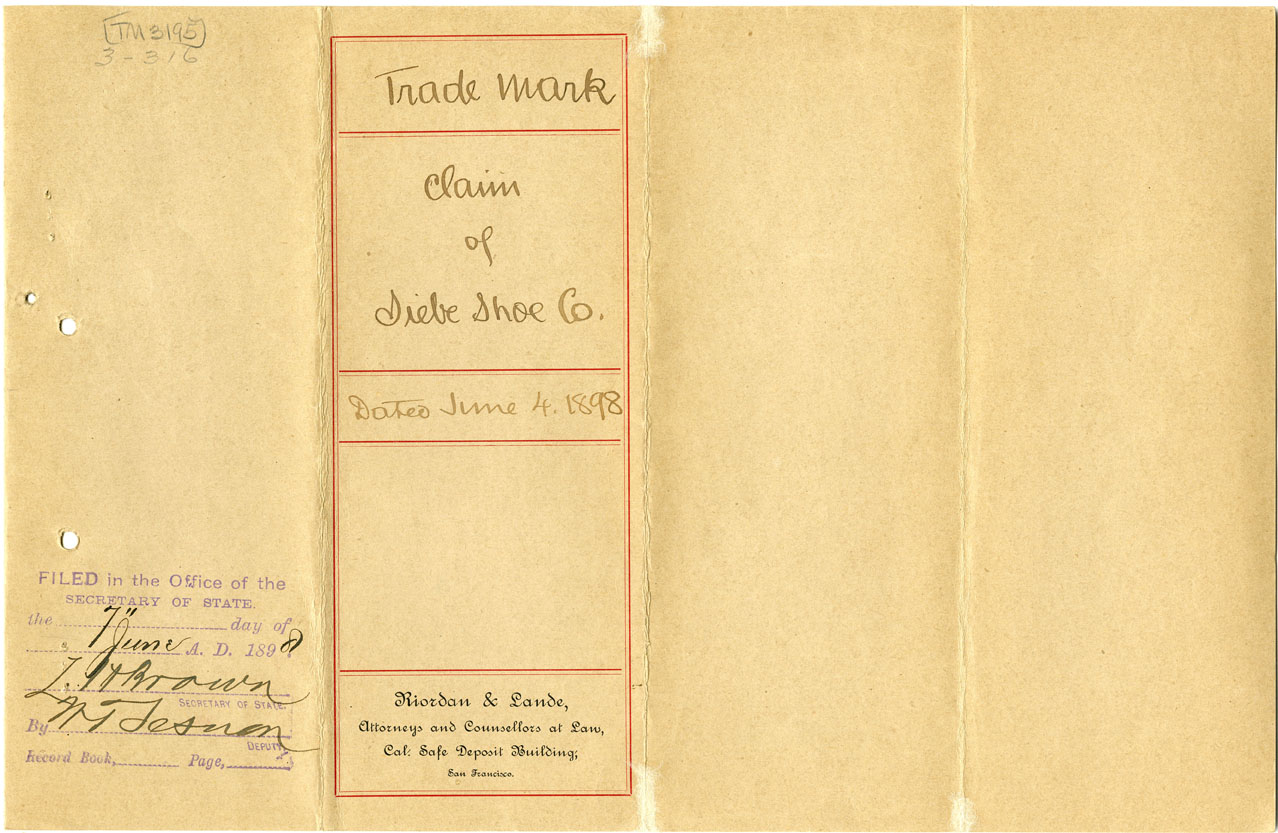 TM 3195
3-316
Trade Mark
Claim
of
Siebe Shoe Co.
Dated June 4. 1898
Riordan & Lande,
Attorneys and Counsellors at Law,
Cal. Safe Deposit Building,
San Francisco.
FILED in the Office of the
SECRETARY OF STATE.
the 7" day of
June A. D. 1898
L. H. Brown
SECRETARY OF STATE.
By
DEPUTY
Record Book, Page,